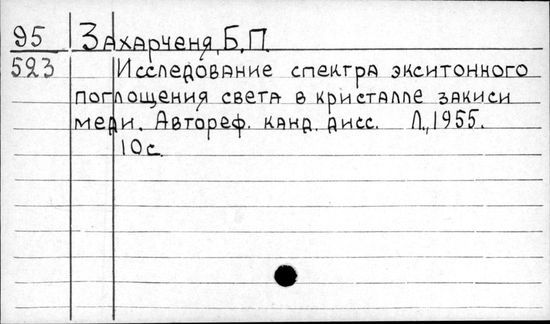 95 Захарченя, Б.П.
523 Исследование спектра экситонного
поглощения света в кристалле закиси
меди. Автореф. канд. дисс. Л., 1955.
10с.